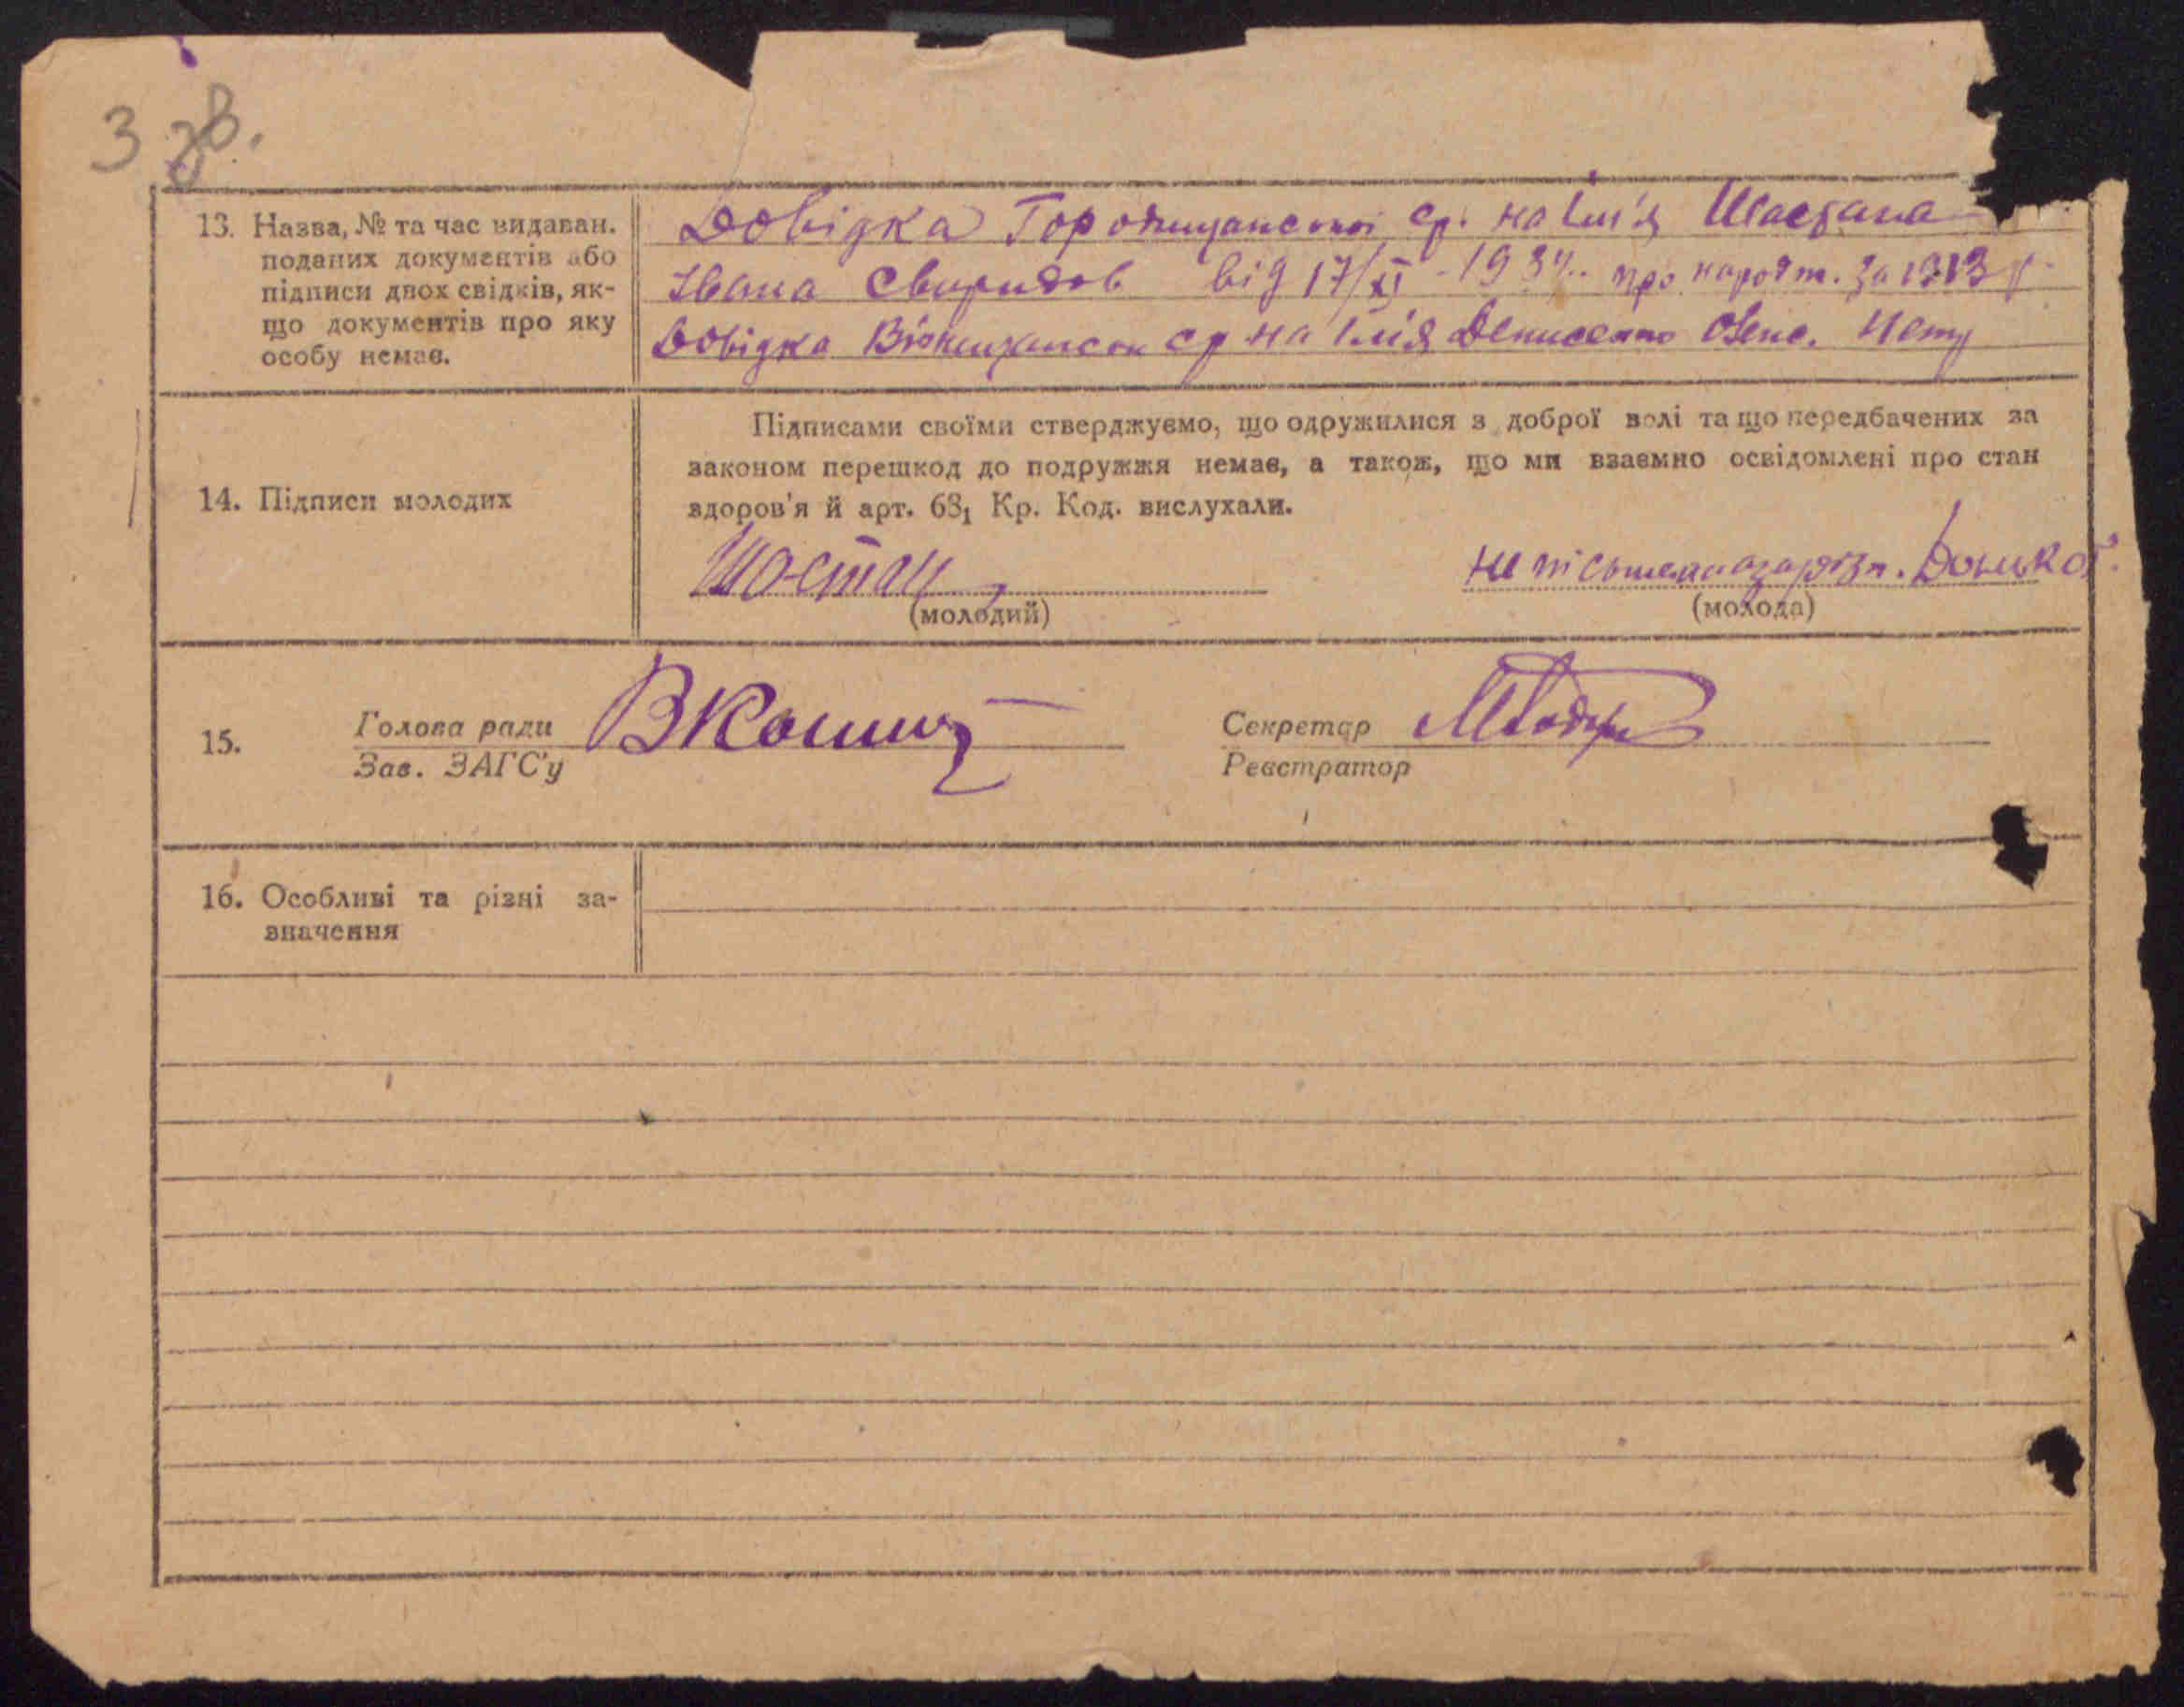 3 зв.
13. Назва, № та час видаван.
поданих документів або
підписи двох свідків, як-
що документів про яку
особу немає.
Довідка Городищанської ср. на імʼя
Івана Свиридов від 17/XI - 1934. про народж. за 1913 р
Довідка ср на імʼя Денисенко
14. Підписи молодих
Підписами своїми стверджуємо, що одружилися з доброї волі та що передбачених за
законом перешкод до подружжя немає, а також, що ми взаємно освідомлені про стан
здоров'я й арт. 63₁ Кр. Код. вислухали.
Шостац
(молодий)
(молода)
15.
Голова ради
Зав. ЗАГС'у
Секретар
Реєстратор
16. Особливі та різні за-
значення